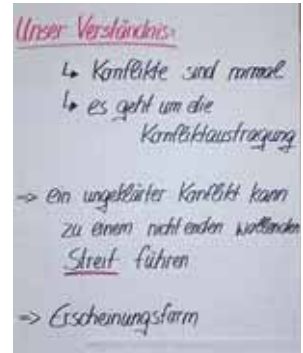 Unser Verständnis:
↳ Konflikte sind normal
↳ es geht um die
Konfliktaustragung
=> ein ungeklärter Konflikt kann
zu einem nicht enden wollenden
Streit führen
=> Erscheinungsform